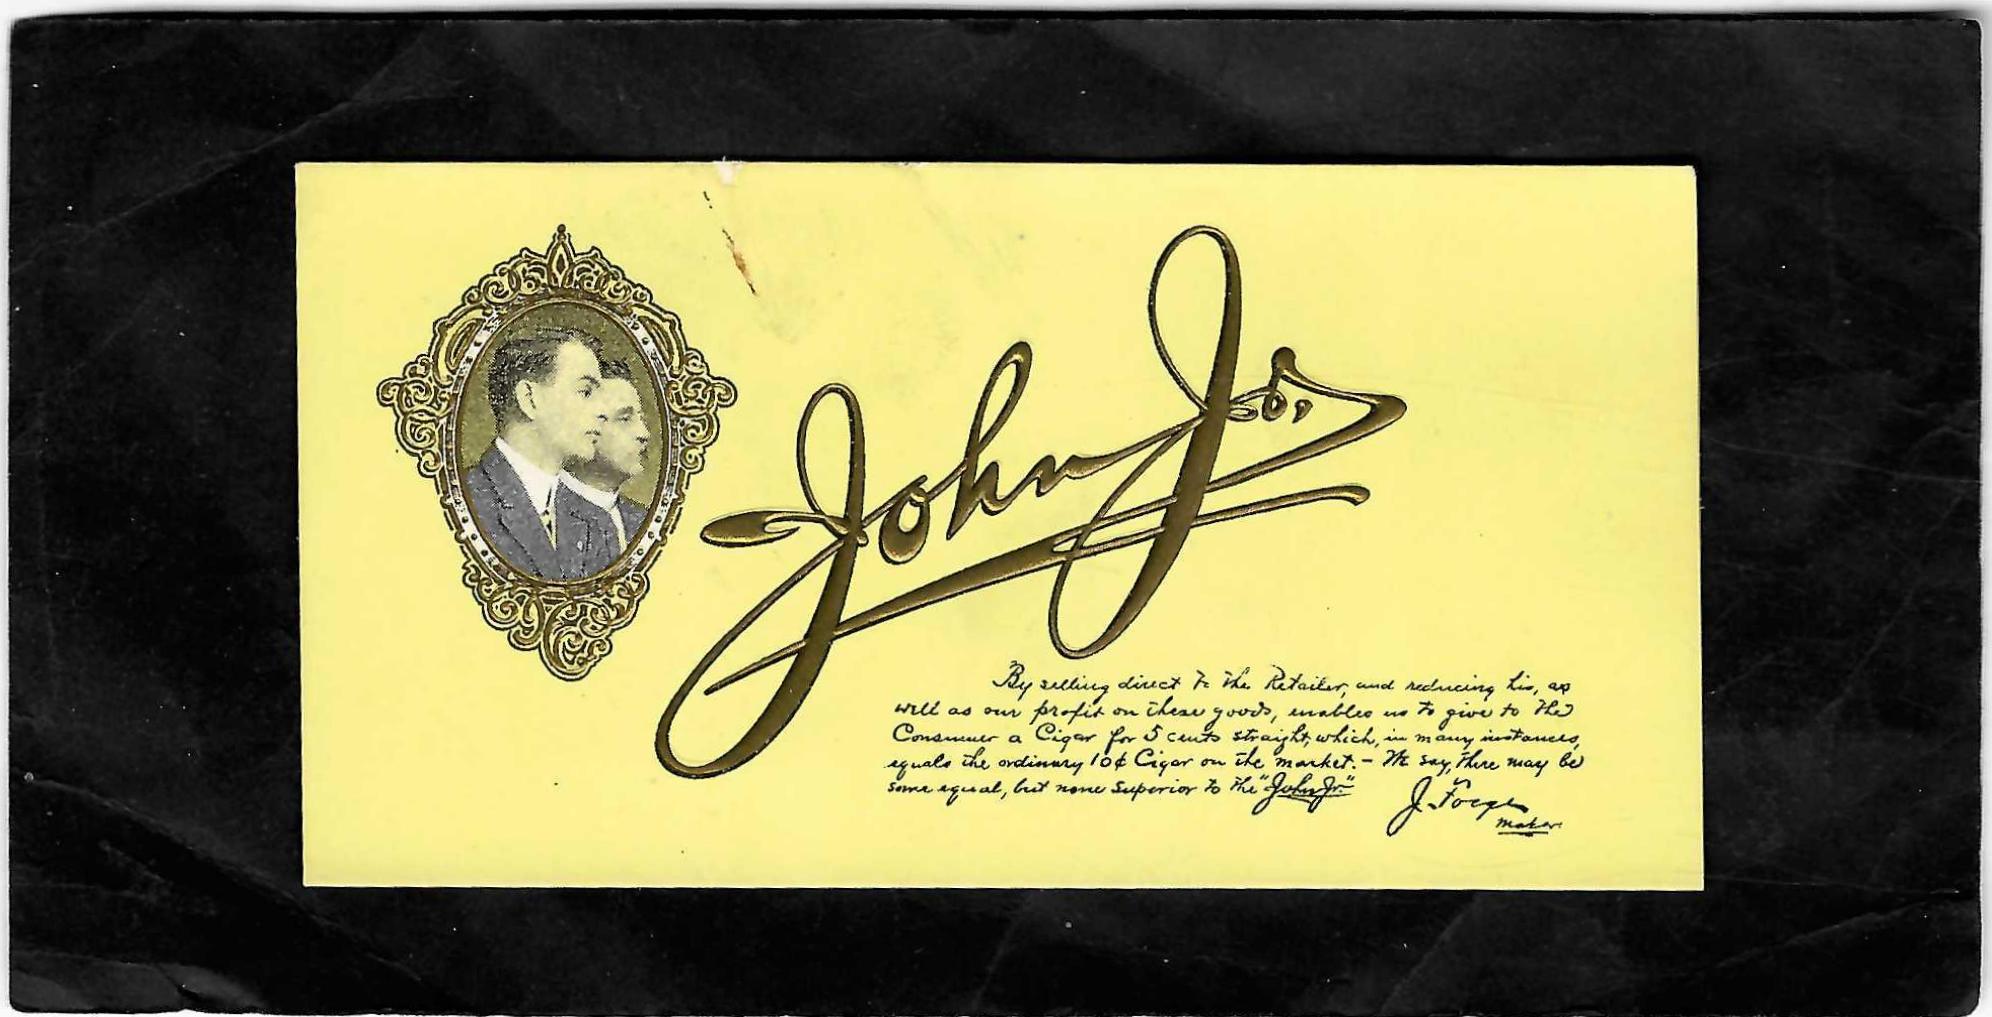 John Jr.
By selling direct to the Retailer, and reducing his, as
well as our profit on these goods, enables us to give to the
Consumer a Cigar for 5 cents straight, which, in many instances,
equals the ordinary 10¢ Cigar on the market. - We say, there may be
some equal, but none Superior to the "John Jr."
J.
maker